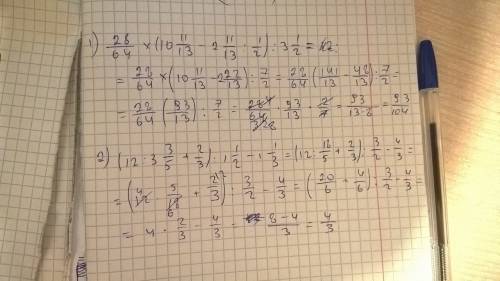 1) 28/64 × (10 11/13 - 2 11/13 · 1/2) : 3 1/2 =
= 28/64 × (10 11/13 - 2 22/13) : 7/2 = 28/64 (141/13 - 48/13) : 7/2 =
= 28/64 (93/13) : 7/2 = 28/64 · 93/13 · 2/7 = 93/13·8 = 93/104
2) (12 : 3 3/5 + 2/3) : 1 1/2 - 1 1/3 = (12 : 18/5 + 2/3) : 3/2 - 4/3 =
= (12 · 5/18 + 2/3) : 3/2 - 4/3 = (20/6 + 4/6) : 3/2 - 4/3 =
= 4 · 2/3 - 4/3 = 8-4/3 = 4/3